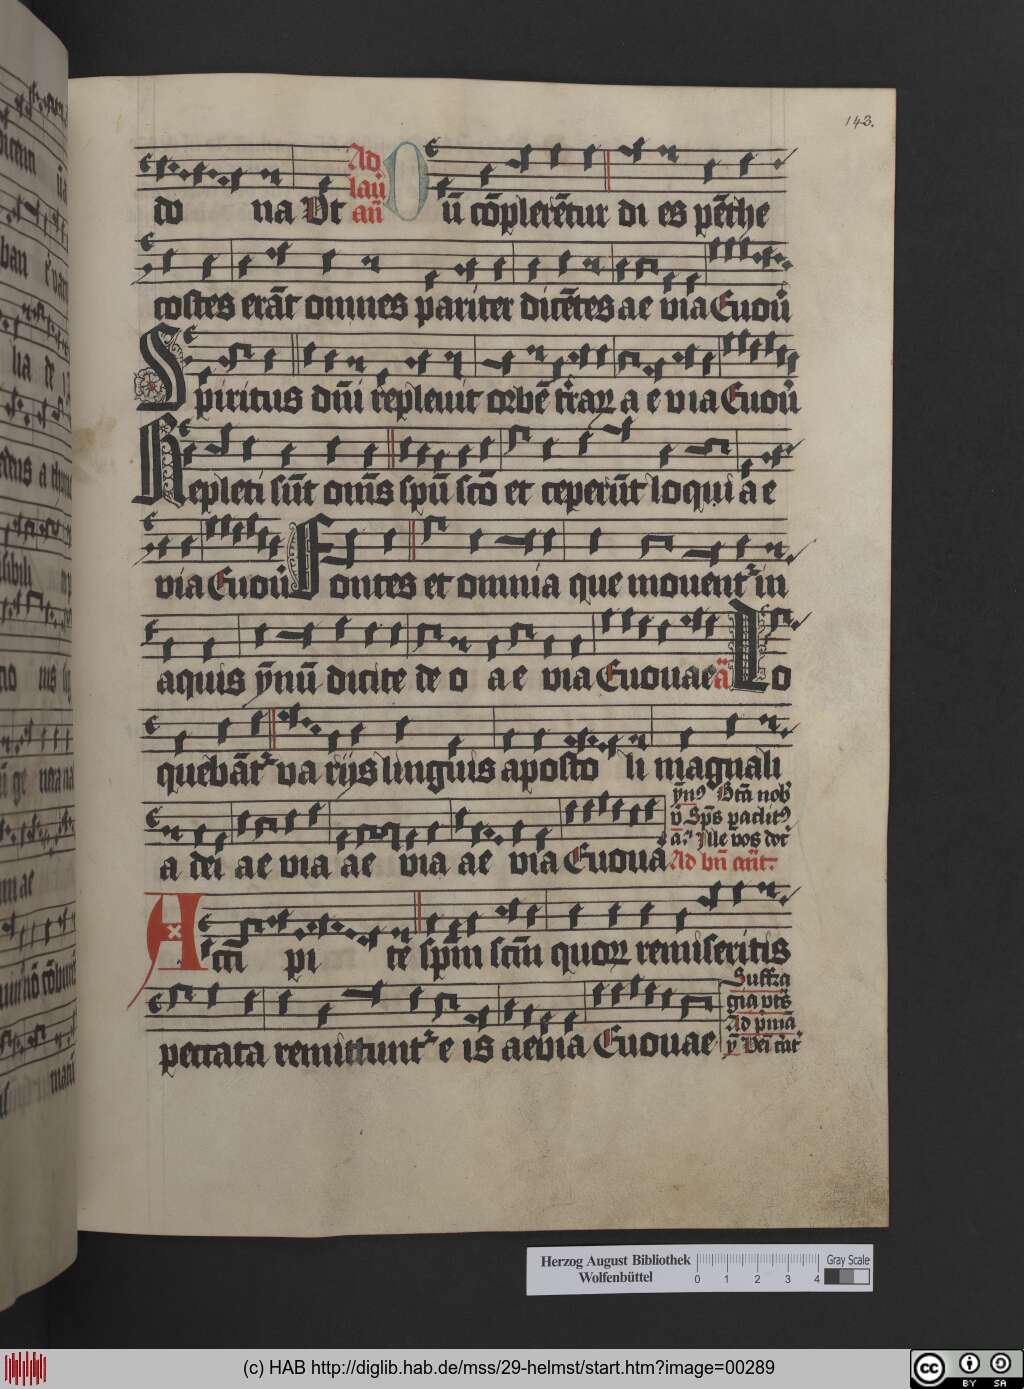 143.
do na Ut Ad lau᷑ an̄ Dū cōplerētur di es pēthe
costes erāt omnes pariter dicētes ae via Euou᷑
Spiritus dn̄i repleuit orbē t᷑raꝝ a e via Euou᷑
Repleti sūt om̄s spū sc̄o et ceperūt loqui a e
via Euou᷑ Fontes et omnia que mouent᷑ in
aquis ȳnū dicite de o a e via Euouae a᷑ Lo
quebāt᷑ va rijs linguis aposto li magnali
a dei ae via ae via ae via Euoua
ȳnꝰ Btā nob᷑
v̄ Sp̄s paclitꝰ
a᷑ Ille vos doc᷑
Ad bn̄ an̄t.
Acci pi te sp̄m sc̄m quoꝝ remiseritis
peccata remittunt᷑ e is aevia Euouae
Suffra
gia vts᷑
Ad p᷑mā
Herzog August Bibliothek
Wolfenbüttel
0 1 2 3 4
Gray Scale
(c) HAB http://diglib.hab.de/mss/29-helmst/start.htm?image=00289
cc BY SA